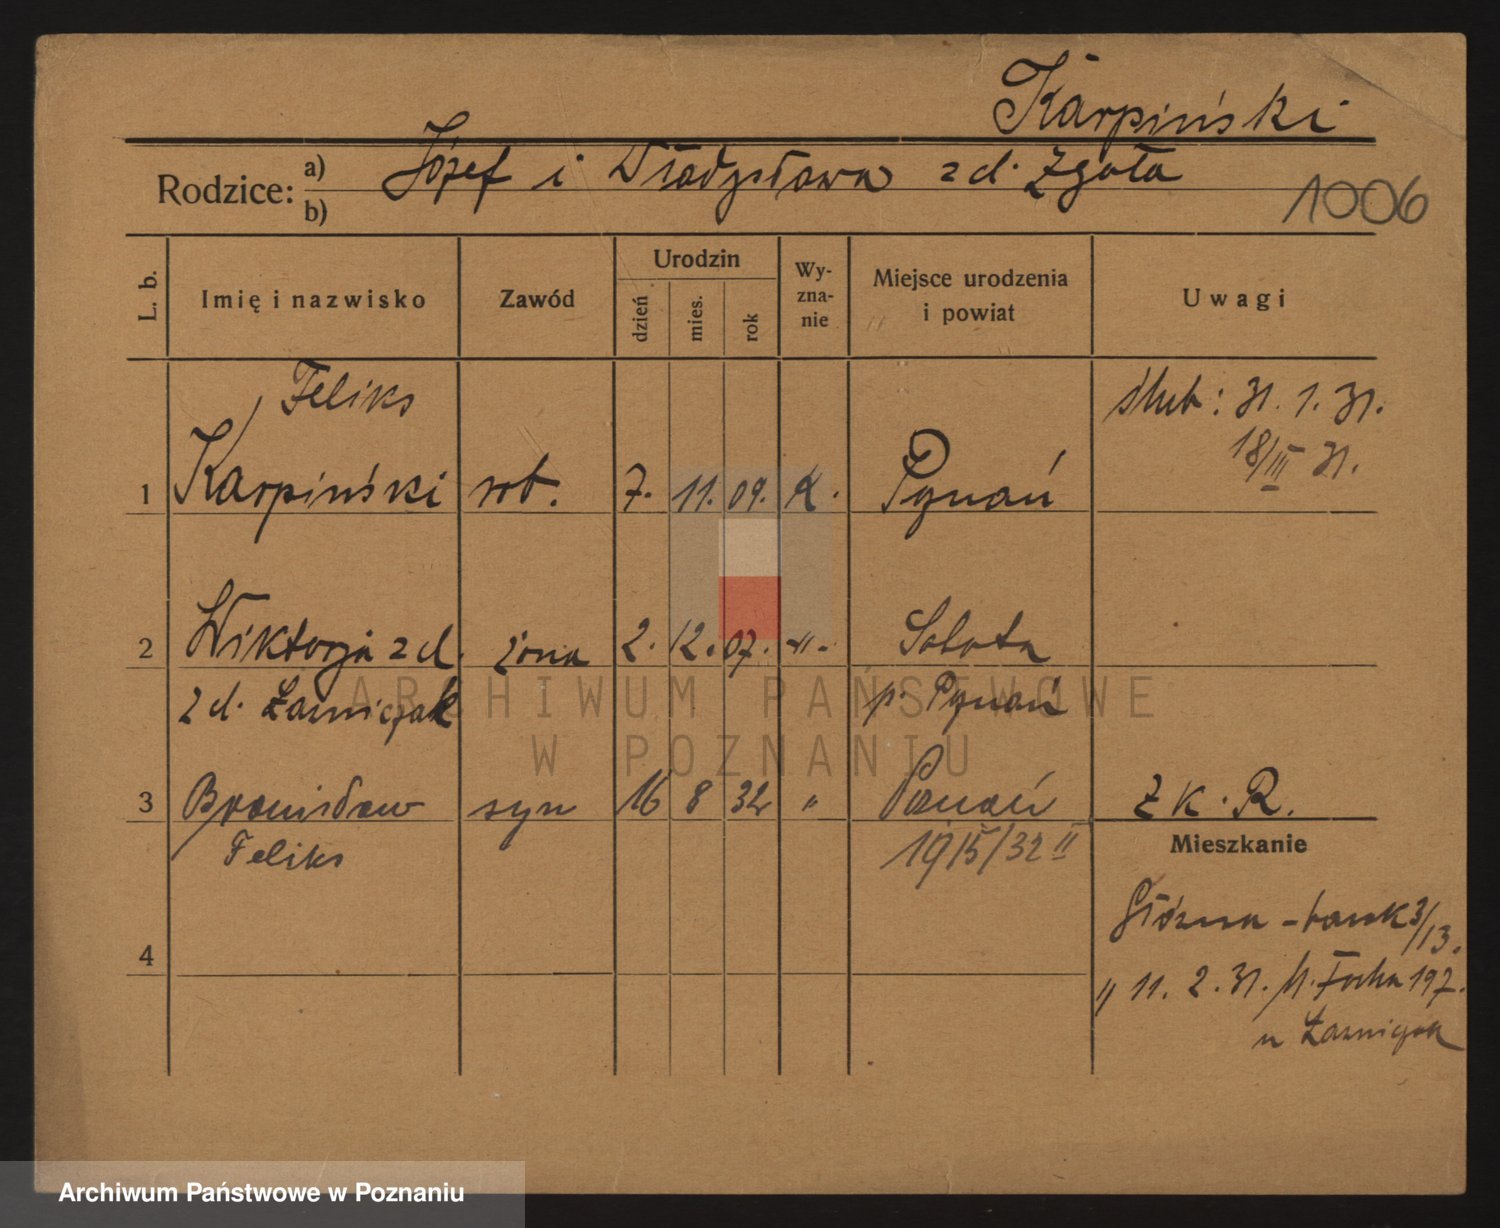 Karpiński
Rodzice: a) Józef i Władysława zd. Zgoła
b)
1006
L. b.
Imię i nazwisko
Zawód
Urodzin
dzień
mies.
rok
Wy-
zna-
nie
Miejsce urodzenia
i powiat
Uwagi
Feliks
ślub: 31. 1. 31.
18/III 31.
1 Karpiński rob. 7. 11. 09. K. Poznań
2 Wiktorja zd. żona 2. 12. 07. -"- Sobota
zd. Łazniczak p. Poznań
ARCHIWUM PAŃSTWOWE
W POZNANIU
3 Bronisław syn 16 8 32 " Poznań Z K. R.
Feliks 1915/32 II
Mieszkanie
Główna - bank 3/13.
4
" 11. 2. 31. M. Focha 197.
u Łazniczak
Archiwum Państwowe w Poznaniu